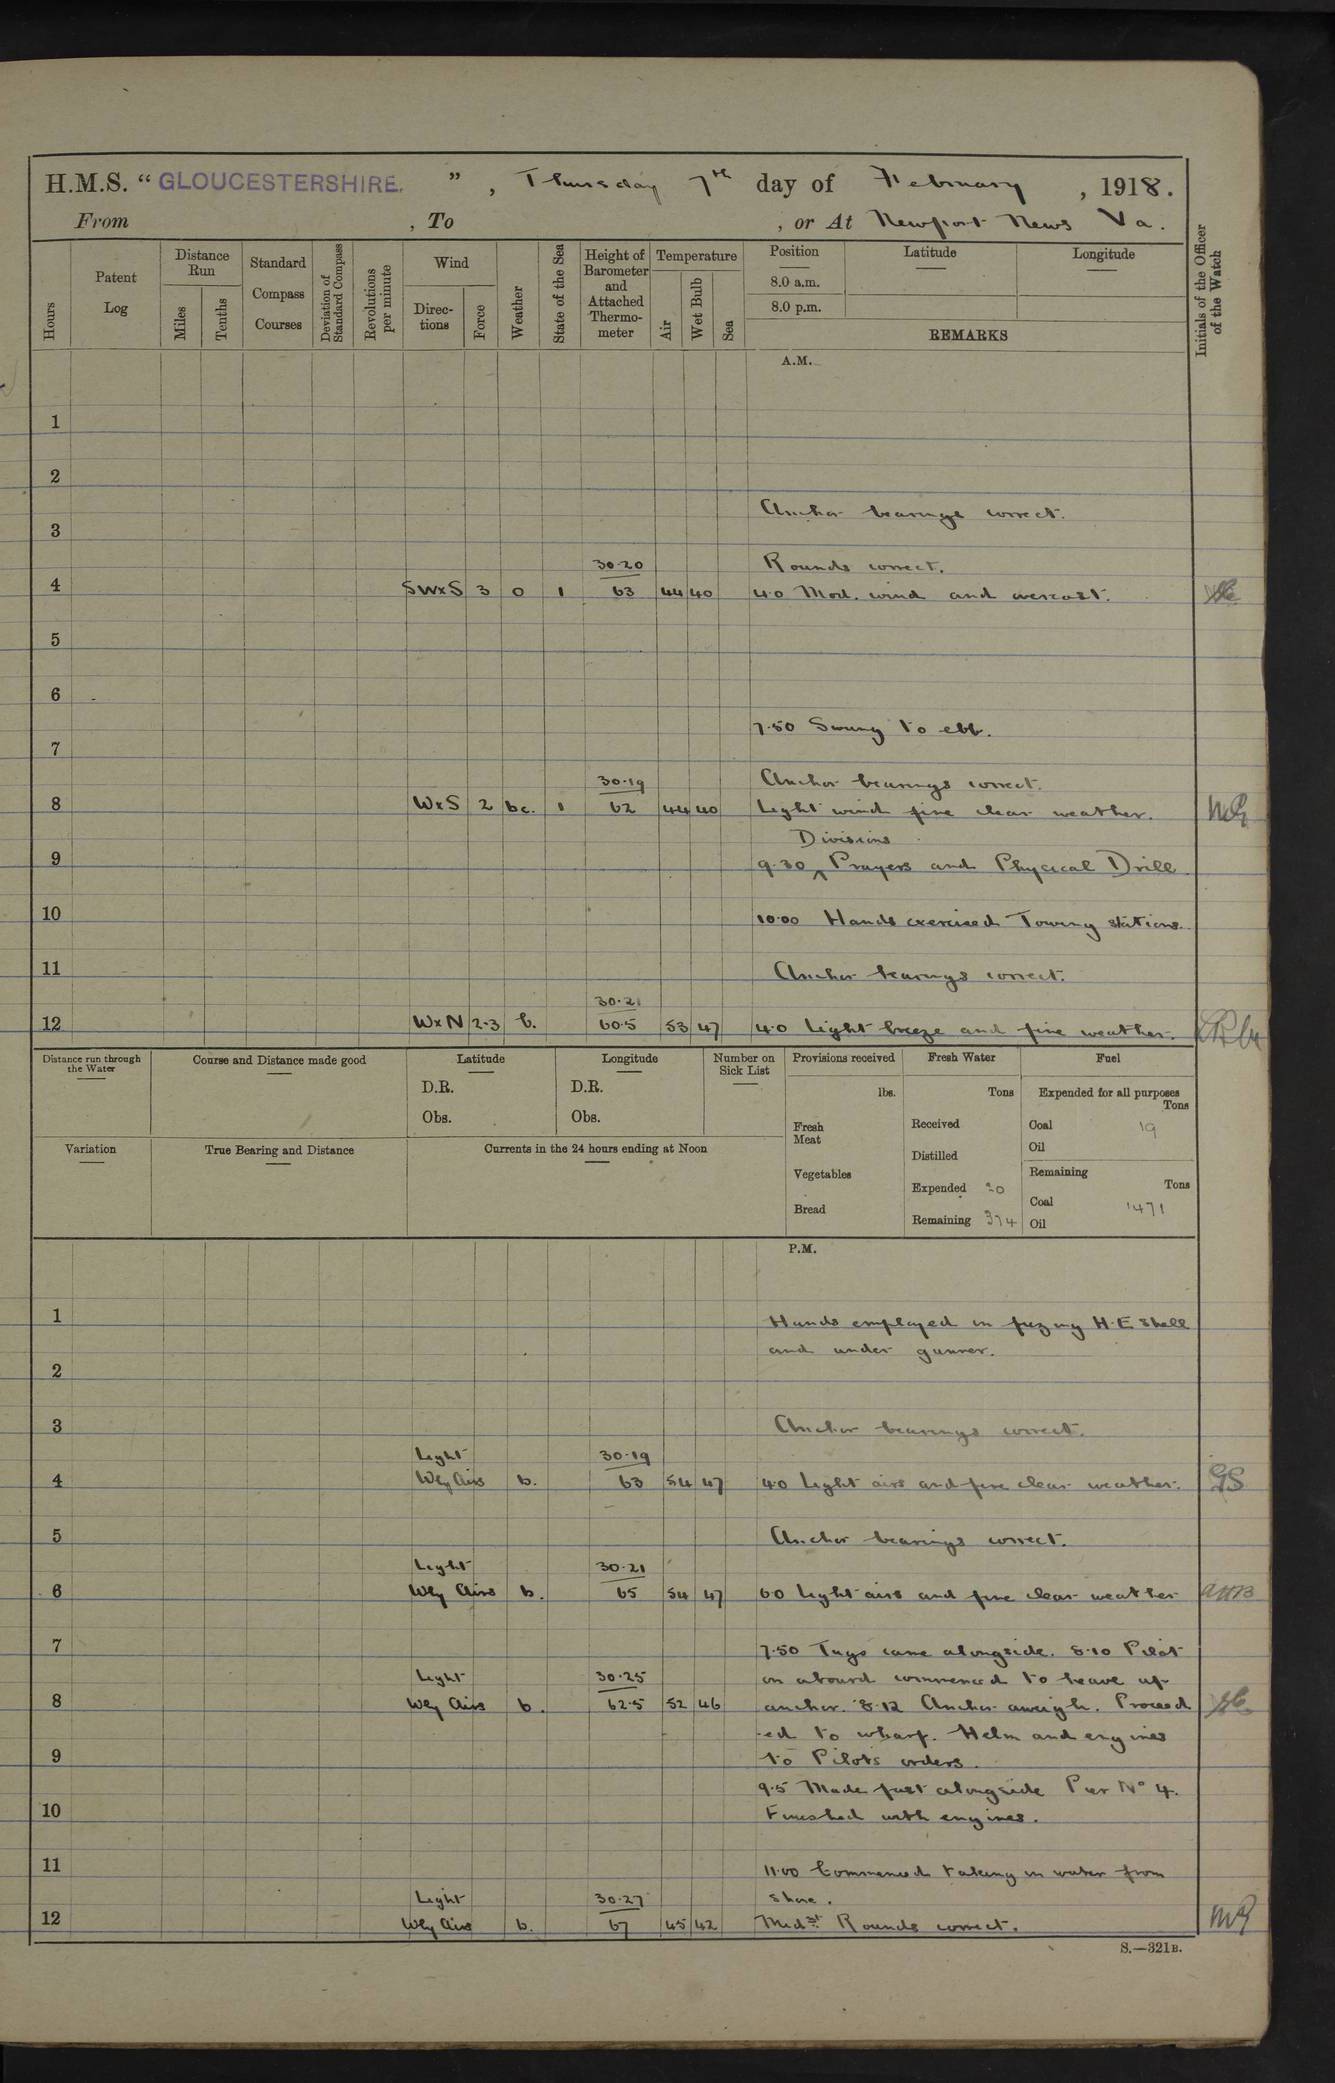 H.M.S. "GLOUCESTERSHIRE.", Thursday 7th day of February, 1918.
From , To , or At Newport News Va.
Hours
Patent Log
Distance Run
Miles
Tenths
Standard Compass Courses
Deviation of Standard Compass
Revolutions per minute
Wind
Directions
Force
Weather
State of the Sea
Height of Barometer and Attached Thermometer
Temperature
Air
Wet Bulb
Sea
Position
8.0 a.m.
8.0 p.m.
Latitude
Longitude
REMARKS
Initials of the Officer of the Watch
A.M.
1
2
Anchor bearings correct.
3
30.20 Rounds correct.
4 SWxS 3 o 1 63 44 40 4.0 Mod. wind and overcast.
5
6
7.50 Swung to ebb.
7
30.19 Anchor bearings correct.
8 WxS 2 bc. 1 62 44 40 Light wind fine clear weather.
Divisions
9 9.30 ^ Prayers and Physical Drill
10 10.00 Hands exercised Towing stations.
11 Anchor bearings correct.
30.21
12 WxN 2.3 b. 60.5 53 47 4.0 Light breeze and fine weather.
Distance run through the Water
Course and Distance made good
Latitude
D.R.
Obs.
Longitude
D.R.
Obs.
Number on Sick List
Variation
True Bearing and Distance
Currents in the 24 hours ending at Noon
Provisions received
lbs.
Fresh Meat
Vegetables
Bread
Fresh Water
Tons
Received
Distilled
Expended 20
Remaining 374
Fuel
Expended for all purposes
Tons
Coal 19
Oil
Remaining
Tons
Coal 1471
Oil
P.M.
1 Hands employed in fuzing H.E shell
and under gunner.
2
3 Anchor bearings correct.
Light 30.19
4 Wly Airs b. 63 54 47 4.0 Light airs and fine clear weather. GS
5 Anchor bearings correct.
Light 30.21
6 Wly Airs b. 65 54 47 6.0 Light airs and fine clear weather
7 7.50 Tugs came alongside. 8.10 Pilot
Light 30.25 on aboard commenced to heave up
8 Wly Airs b. 62.5 52 46 anchor. 8.12 Anchor aweigh. Proceed
-ed to wharf. Helm and engines
9 to Pilots orders.
9.5 Made fast alongside Pier No 4.
10 Finished with engines.
11 11.00 Commenced taking in water from
Light 30.27 shore.
12 Wly Airs b. 67 45 42 Midt. Rounds correct.
S.—321B.